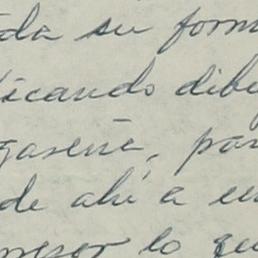 da su form
icando dibu
gaseña, par
de ahí a en
mesor lo que